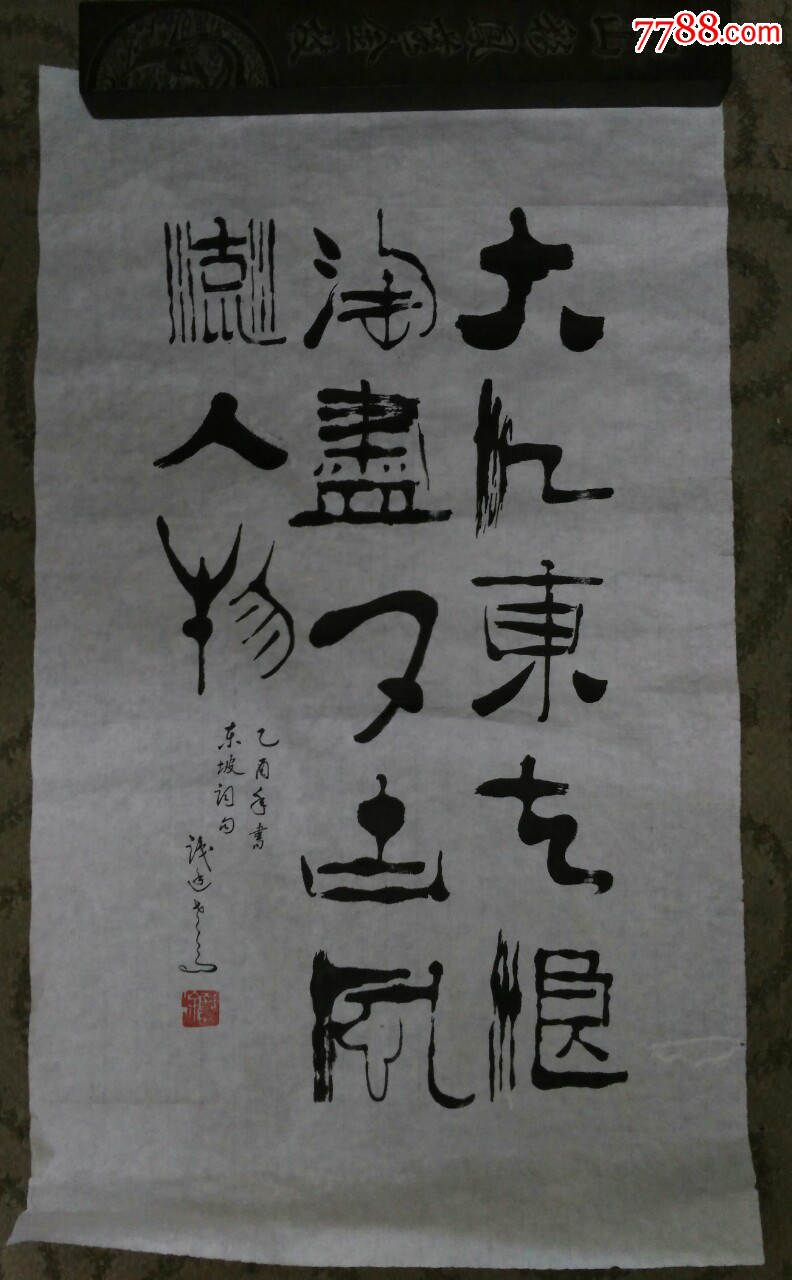 7788.com
大江東去浪
淘盡千古風
流人物
乙酉年書
东坡词句